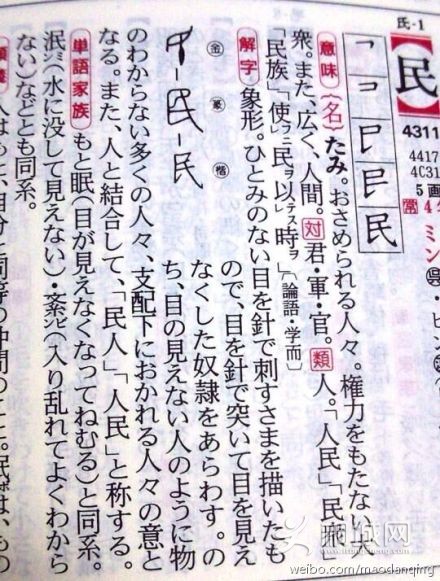 氏-1
【民】
4311
4417
4C31
5画
常
ミン
民
意味 〔名〕たみ。おさめられる人々。権力をもたない
衆。また、広く、人間。対 君・軍・官。類 人。「人民」「民衆
「民族」「使フニ民ヲ以レテス時ヲ」〔論語・学而〕
解字 象形。ひとみのない目を針で刺すさまを描いたも
ので、目を針で突いて目を見え
なくした奴隷をあらわす。の
ち、目の見えない人のように物
金 篆 楷
民
のわからない多くの人々、支配下におかれる人々の意と
なる。また、人と結合して、「民人」「人民」と称する。
単語家族 もと眠(目が見えなくなってねむる)と同系。
泯(水に没して見えない)・紊(入り乱れてよくわから
ない)などとも同系。
自分と同等の仲間のこと。民は、もの
weibo.com/maodanqing